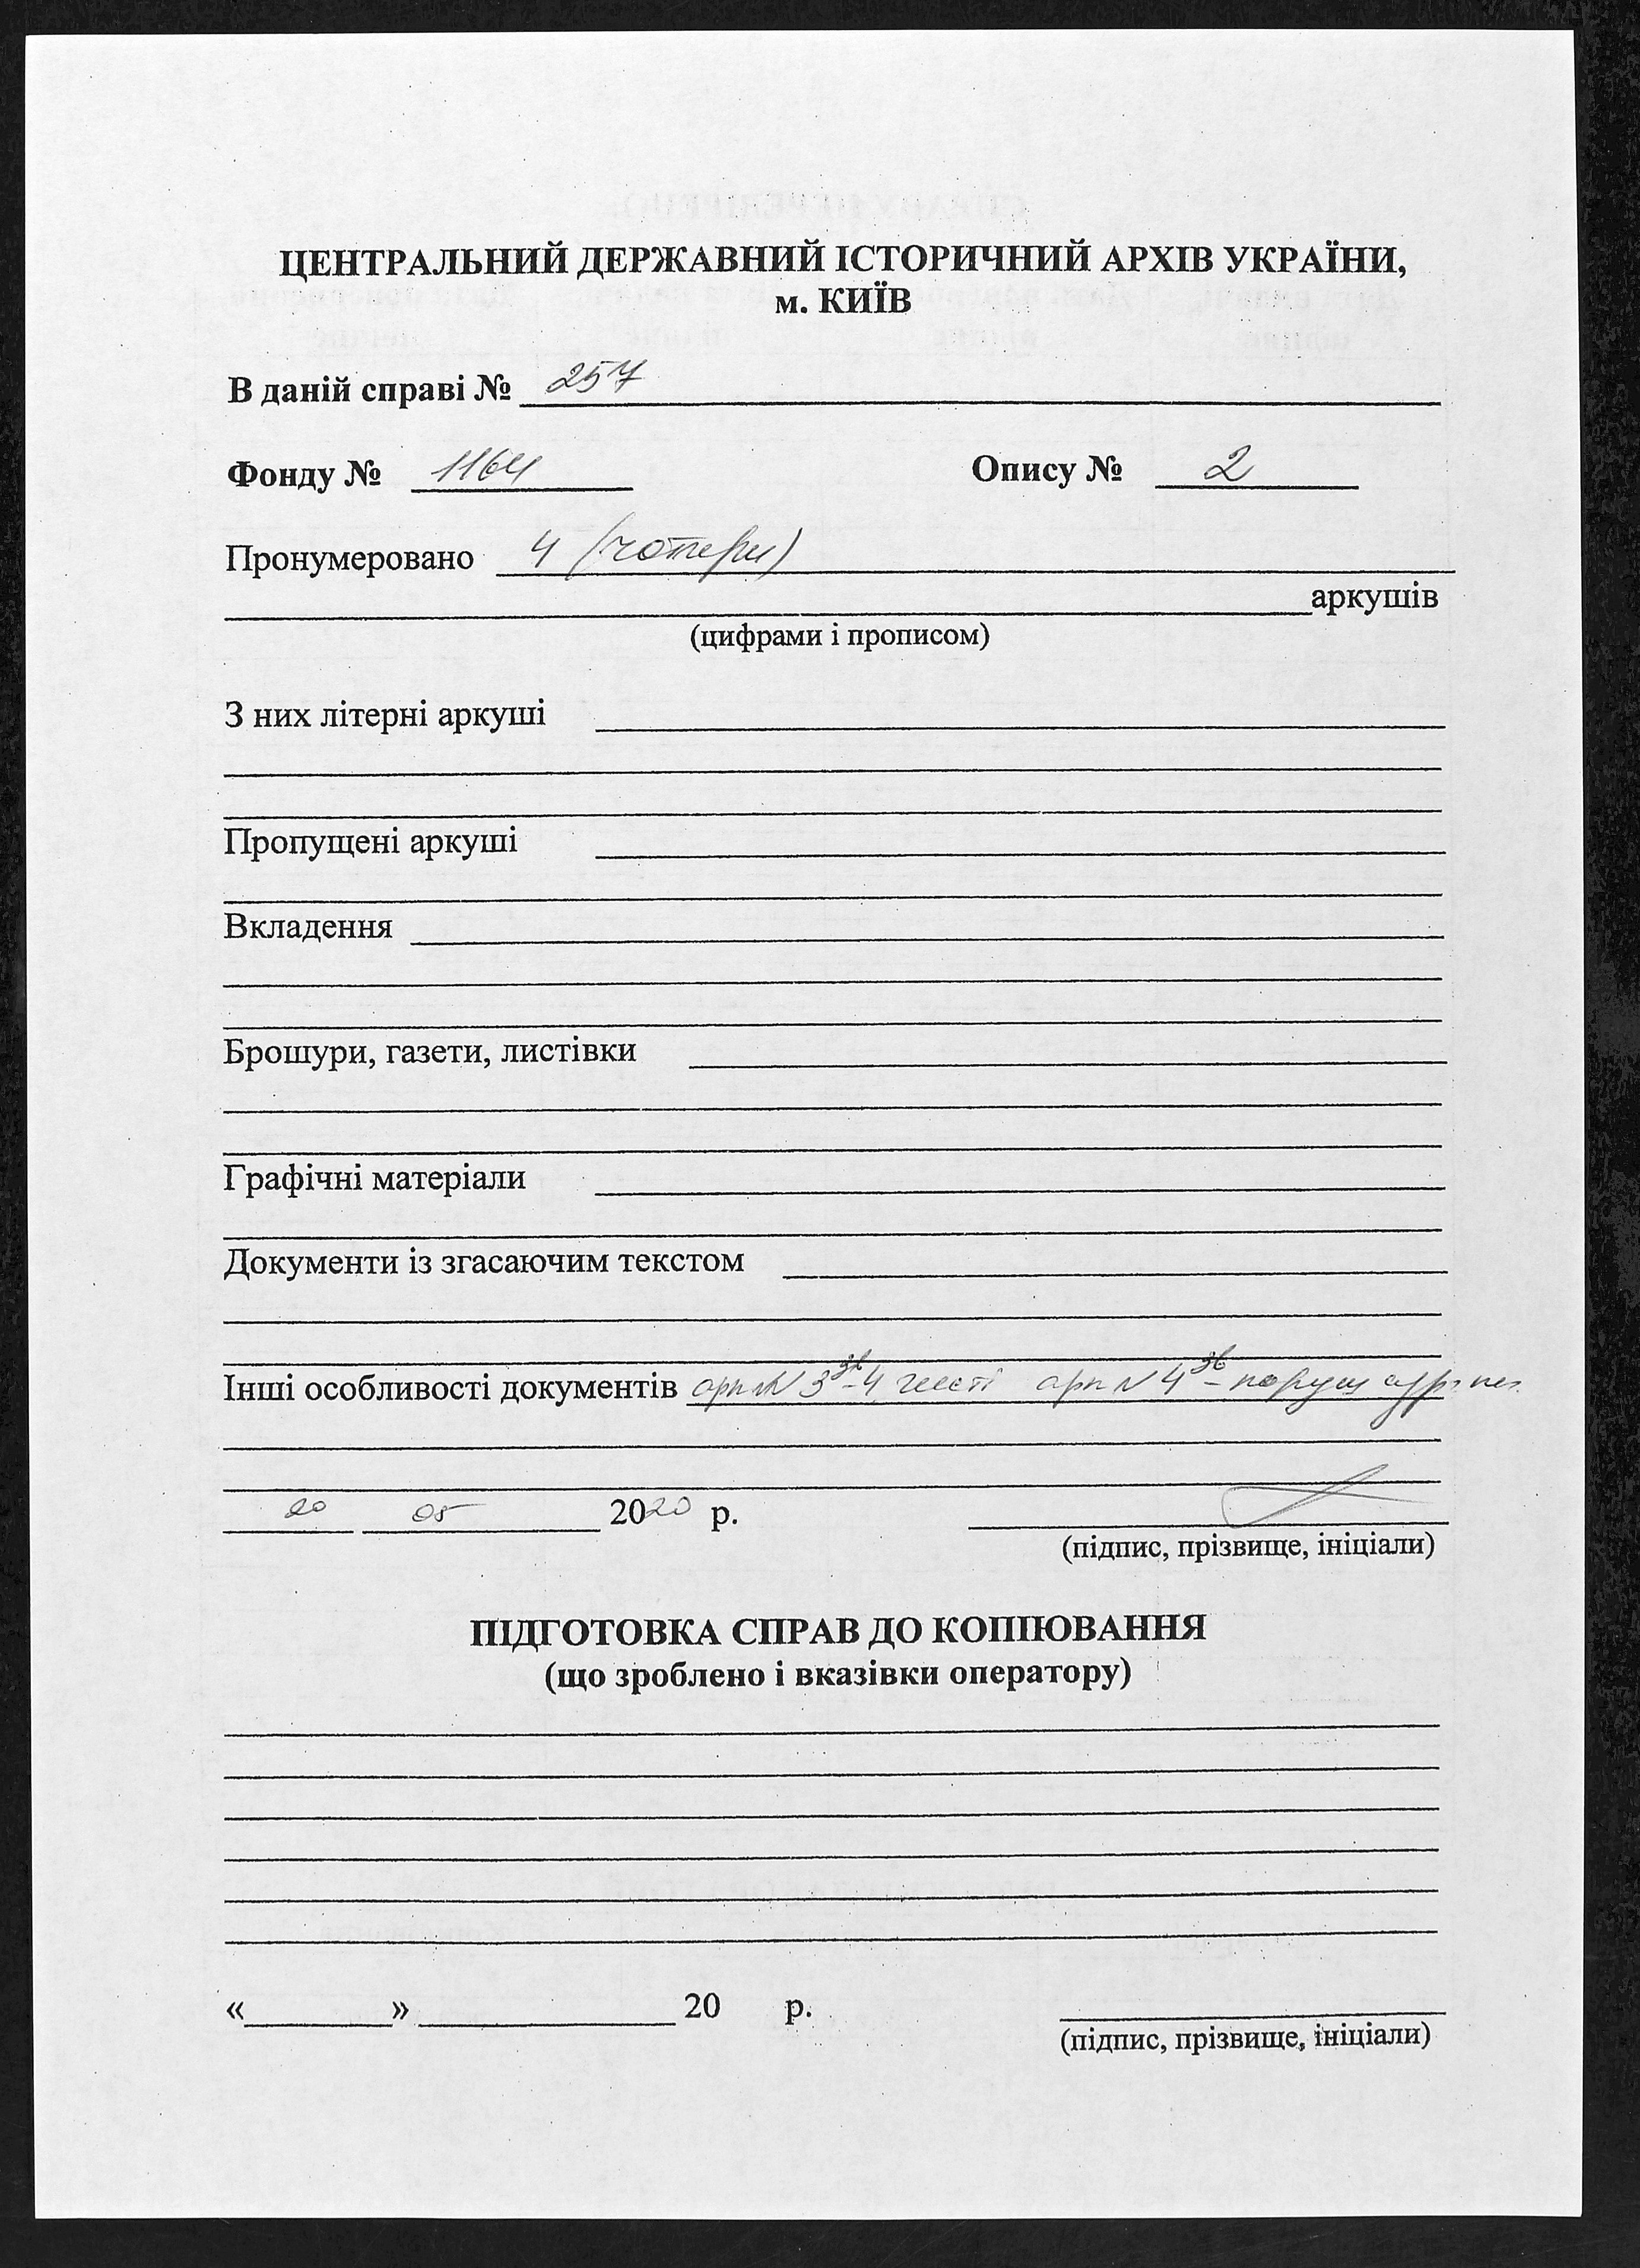 ЦЕНТРАЛЬНИЙ ДЕРЖАВНИЙ ІСТОРИЧНИЙ АРХІВ УКРАЇНИ,
м. КИЇВ
В даній справі № 257
Фонду № 1164 Опису № 2
Пронумеровано 4 (чотири)
аркушів
(цифрами і прописом)
З них літерні аркуші
Пропущені аркуші
Вкладення
Брошури, газети, листівки
Графічні матеріали
Документи із згасаючим текстом
Інші особливості документів арк № 3зв-4 чисті арк № 4зв - поруш
20 05 2020 р.
(підпис, прізвище, ініціали)
ПІДГОТОВКА СПРАВ ДО КОПІЮВАННЯ
(що зроблено і вказівки оператору)
« » 20 р.
(підпис, прізвище, ініціали)